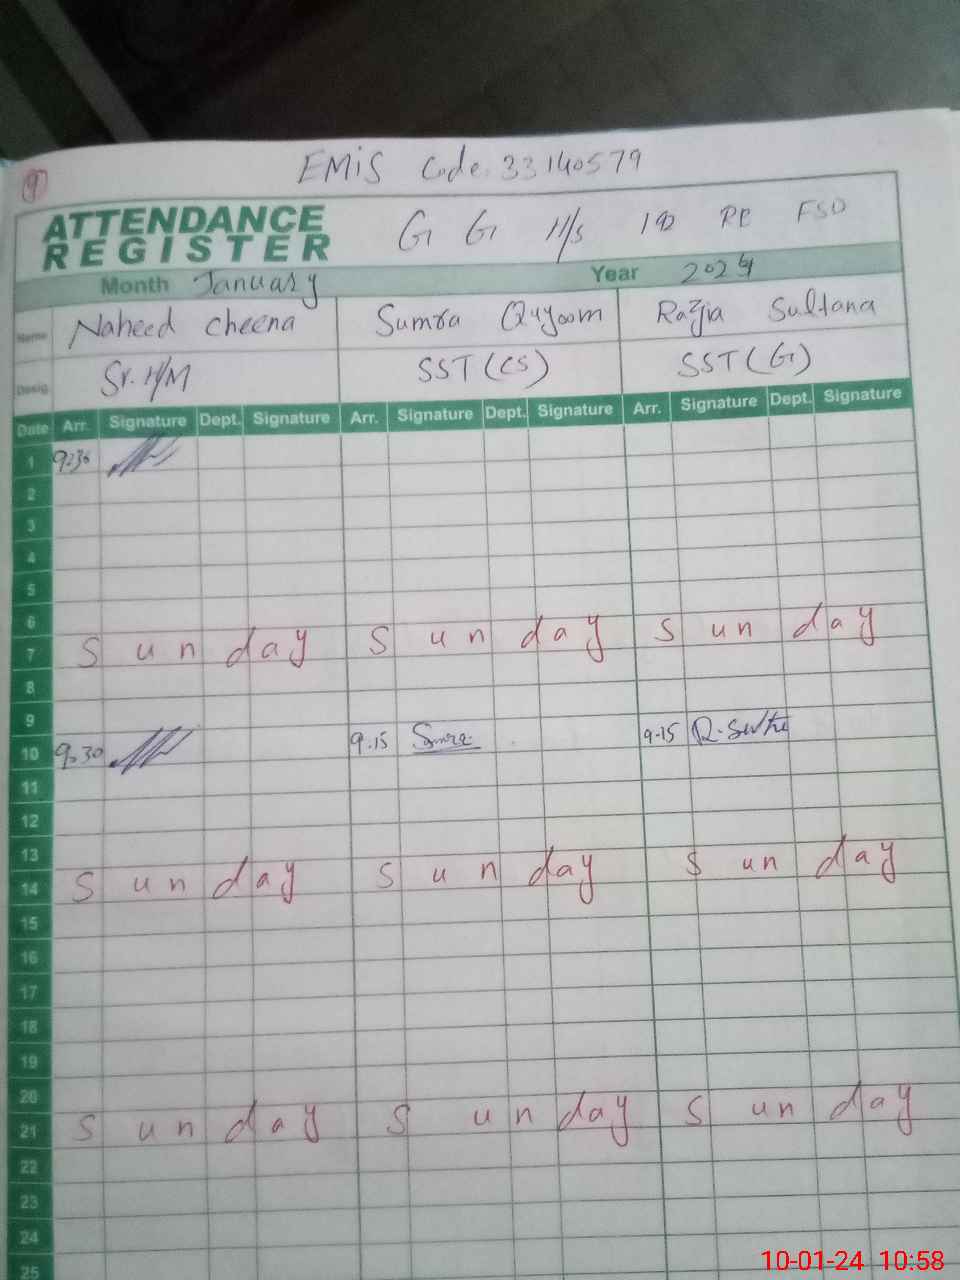 9
EMIS Code. 33140579
ATTENDANCE
REGISTER
G G H/S 192 RB FSD
Month January Year 2024
Name Naheed cheena Sumra Quyoom Razia Sultana
Desig. Sr. H/M SST (CS) SST (G)
Date Arr. Signature Dept. Signature Arr. Signature Dept. Signature Arr. Signature Dept. Signature
1 9:30
2
3
4
5
6
7 Sunday Sunday Sunday
8
9
10 9:30 9.15 Sumra 9-15
11
12
13
14 Sunday Sunday Sunday
15
16
17
18
19
20
21 Sunday Sunday Sunday
22
23
24
25
10-01-24 10:58